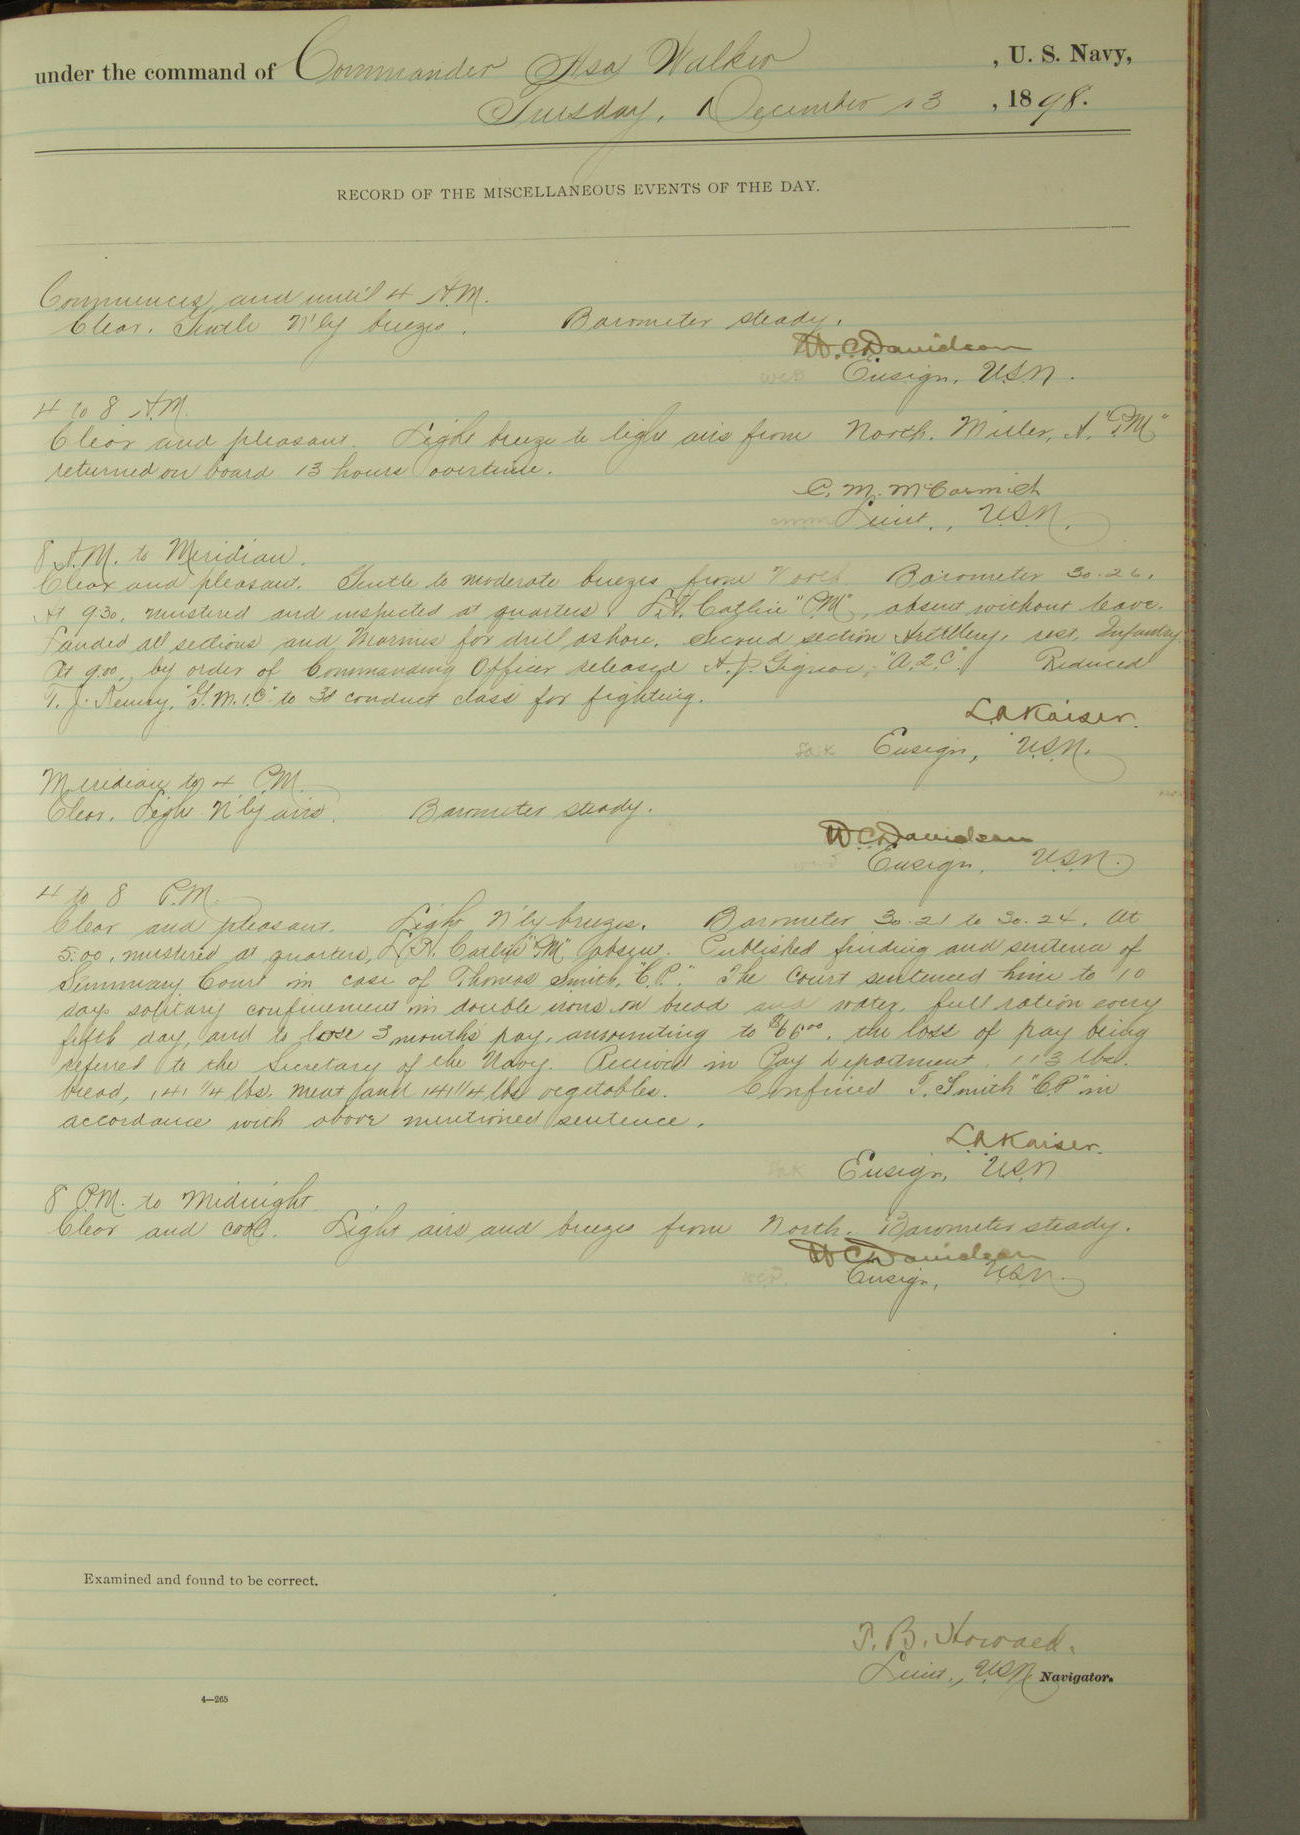 under the command of Commander Asa Walker , U. S. Navy,
Tuesday, December 13 , 1898.
RECORD OF THE MISCELLANEOUS EVENTS OF THE DAY.
Commences and until 4 A.M.
Clear. Gentle N'ly breeze. Barometer steady.
W.C. Davidson
Ensign, U.S.N.
4 to 8 A.M.
Clear and pleasant. Light breeze to light airs from North. Miller, A. "P.M."
returned on board 13 hours overtime.
C. M. McCormick
Lieut., U.S.N.
8 A.M. to Meridian.
Clear and pleasant. Gentle to moderate breezes from North Barometer 30.26.
At 9.30, mustered and inspected at quarters. Catlin "P.M", absent without leave.
Landed all sections and Marines for drill ashore. Second section Artillery, rest, Infantry
At 9.00, by order of Commanding Officer released A. J. "A,2,C". Reduced
T. J. "G.M.1.C" to 3d conduct class for fighting.
L.A. Kaiser.
Ensign, U.S.N.
Meridian to 4 P.M.
Clear. Light N'ly airs. Barometer steady.
W.C. Davidson
Ensign, U.S.N.
4 to 8 P.M.
Clear and pleasant. Light N'ly breezes. Barometer 30.21 to 30.24. At
5.00, mustered at quarters, Catlin "P.M" absent. Published finding and sentence of
Summary Court in case of Thomas Smith, "C.P.". The Court sentenced him to 10
days solitary confinement in double irons on bread and water, full ration every
fifth day, and to lose 3 months' pay, amounting to $66.00, the loss of pay being
referred to the Secretary of the Navy. Received in Pay Department, 113 lbs.
bread, 141 1/4 lbs. meat and 141 1/4 lbs vegetables. Confined T. Smith "C.P" in
accordance with above mentioned sentence.
L.A. Kaiser.
Ensign, U.S.N
8 P.M. to Midnight
Clear and cool. Light airs and breezes from North. Barometer steady.
W.C. Davidson
Ensign, U.S.N.
Examined and found to be correct.
T. B. Howard.
Lieut., U.S.N. Navigator.
4—265